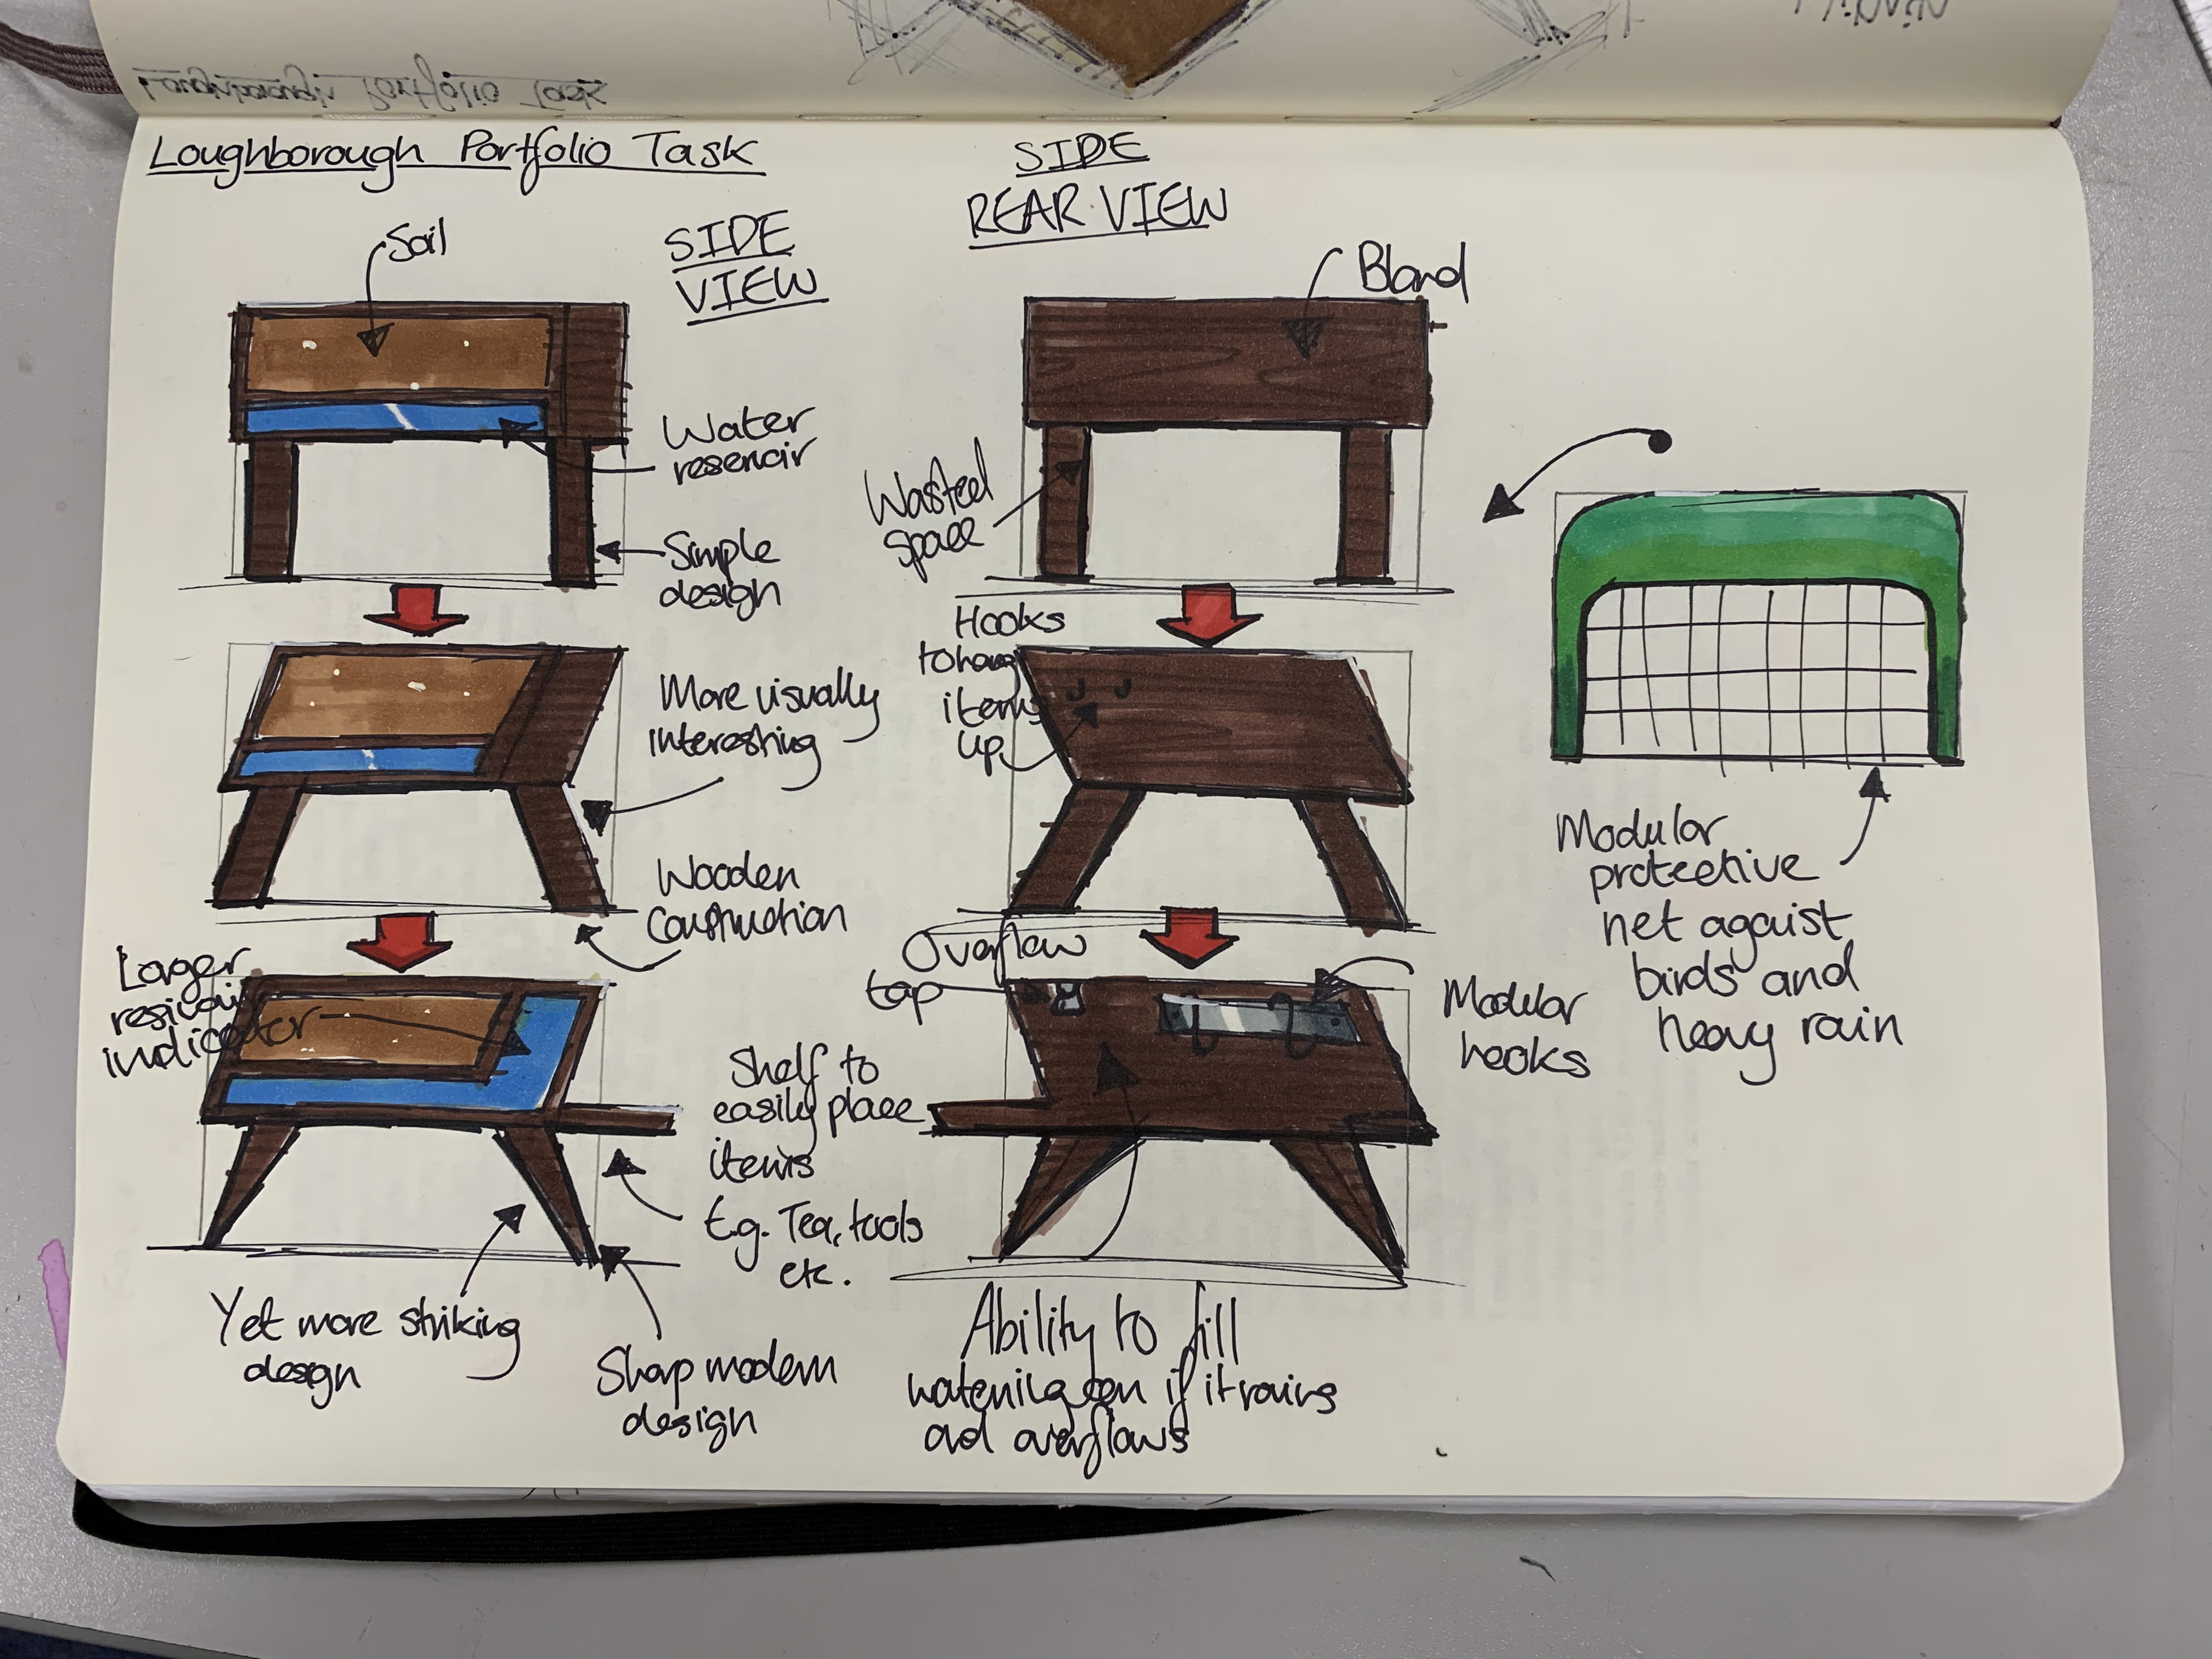 Loughborough Portfolio Task
SIDE
VIEW
Soil
Water
reservoir
Simple
design
More visually
interesting
Wooden
Construction
Larger
resivoir
indicator
Shelf to
easily place
items
E.g. Tea, tools
etc.
Yet more striking
design
Sharp modern
design
SIDE
REAR VIEW
Bland
Wasted
space
Hooks
to hang
items
up
Overflow
tap
Modular
hooks
Ability to fill
if it rains
and overflows
Modular
protective
net agaist
birds and
heavy rain
Loughborough Portfolio Task